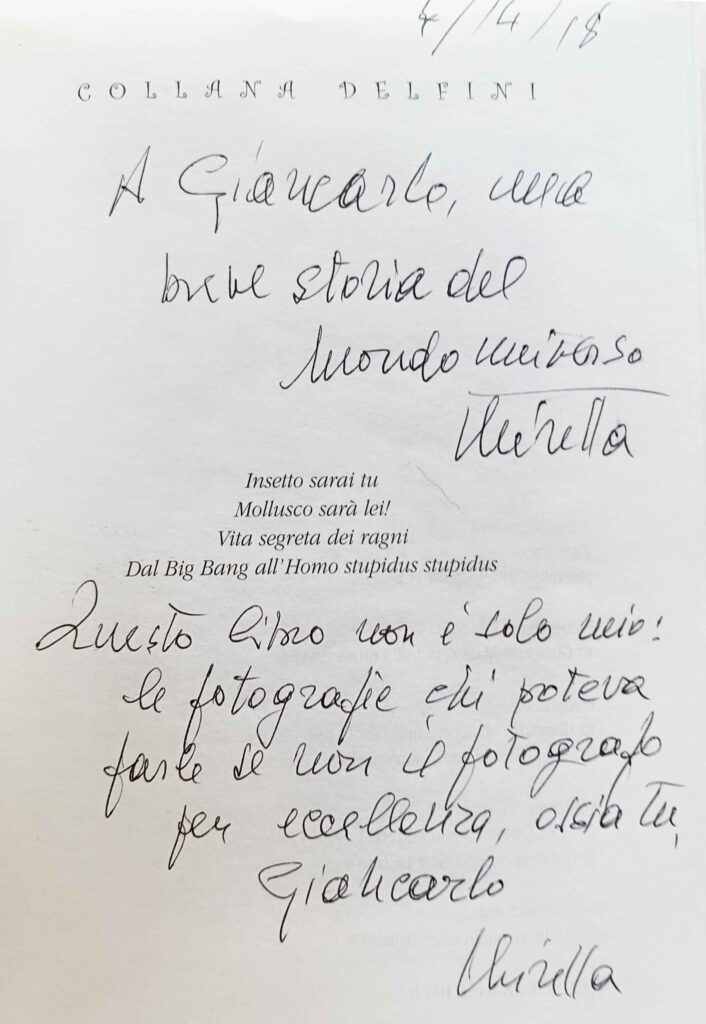 4/14/18
COLLANA DELFINI
A Giancarlo, una
breve storia del
mondo universo
Mirella
Insetto sarai tu
Mollusco sarà lei!
Vita segreta dei ragni
Dal Big Bang all'Homo stupidus stupidus
Questo libro non è solo mio:
le fotografie chi poteva
farle se non il fotografo
per eccellenza, ossia tu,
Giancarlo
Mirella